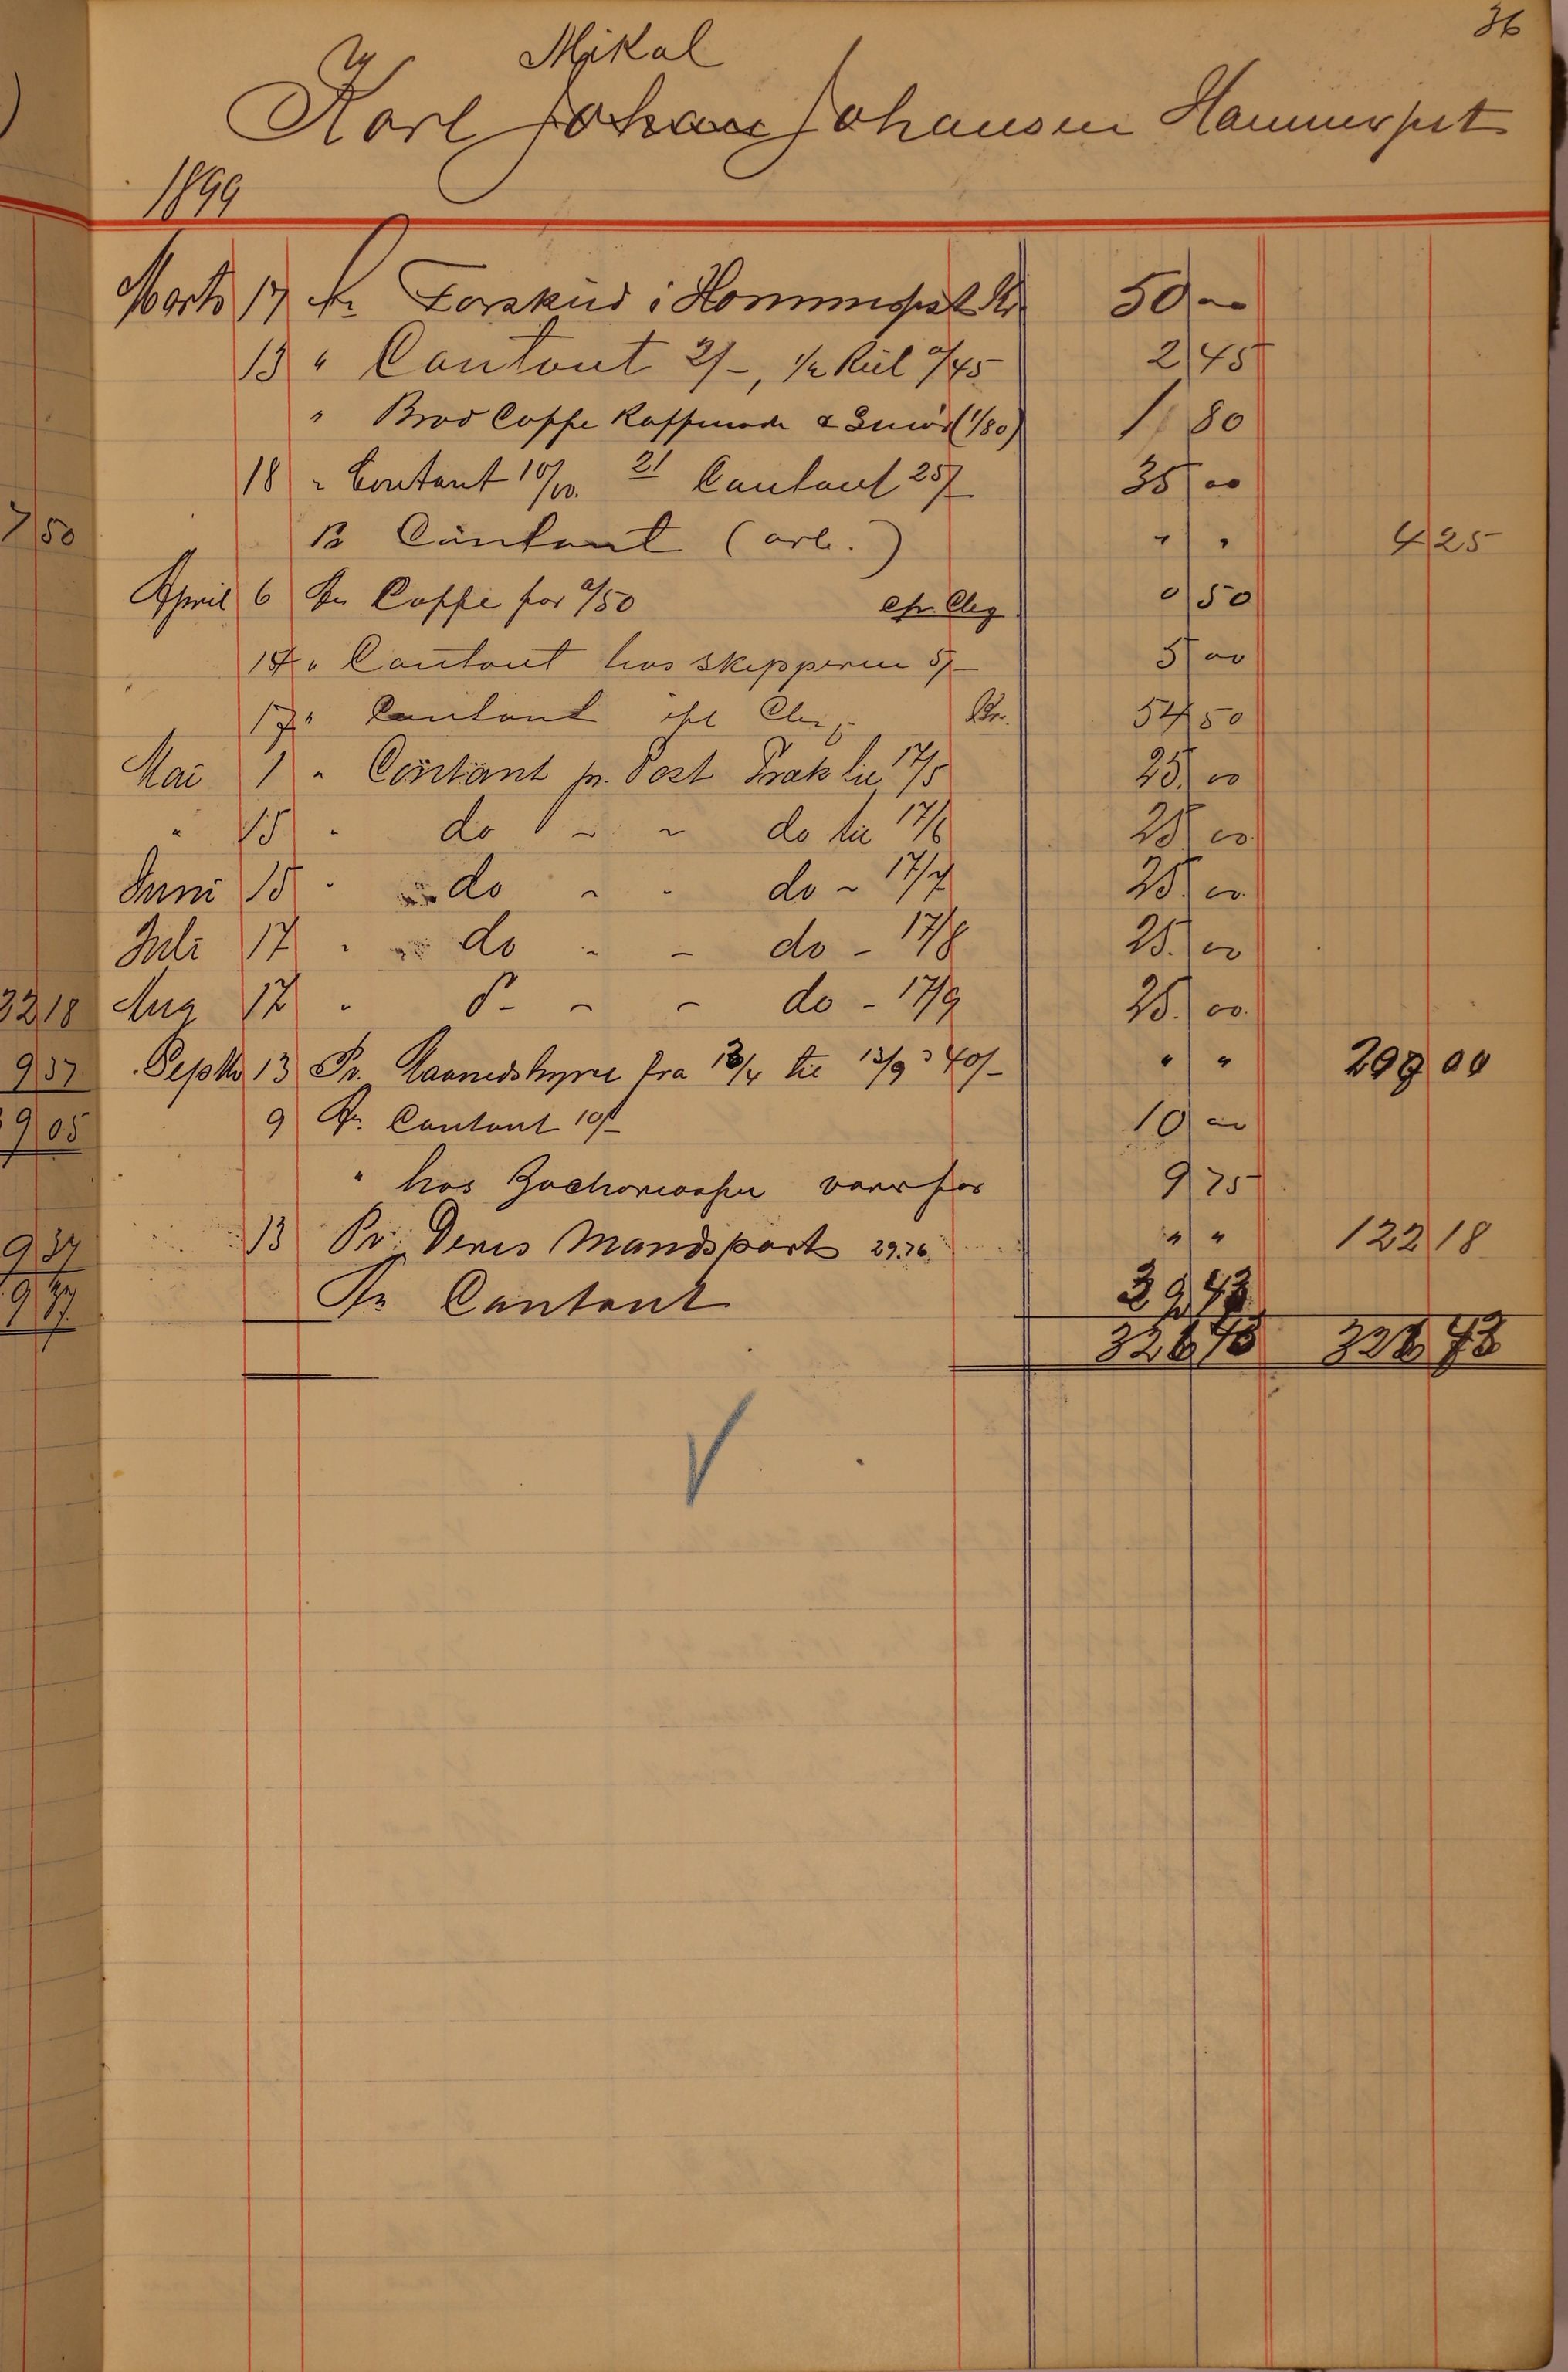 36
Mikal
Karl Johan Johansen Hammerfest
1899
Marts 17 An Forskud i Honningsvåg Kr 50 00
13 " Contant 2/-, 1/2 Kiil 0/45 2 45
" Brød Coffe Kaffemade & Smör (1/80) 1 80
18 " Contant 10/00. 21 Contant 25/- 35 00
Pr Contant (arb.) " " 4 25
7 50
April 6 An Coffe for 0/50 efr. Cleg 0 50
14 " Contant hos skipperen 5/- 5 00
17 " Contant ifl Cleg Kr. 54 50
Mai 1 " Contant pr. Post Trak til 17/5 25 00
" 15 " do " " do til 17/6 25 00
Juni 15 " do " " do " 17/7 25 00
Juli 17 " do " - do - 17/8 25 00
3218 Aug 17 " do - - do - 17/9 25 00
937 Septbr 13 Pr. Maanedshyre fra 13/4 til 13/9 à 40/- " " 200 00
9 05 9 An Contant 10/- 10 00
" hos Zachariassen 9 75
9 37 13 Pr. Deres Mandspart 29.76 " " 122 18
An Contant 39 43
326 43 326 43